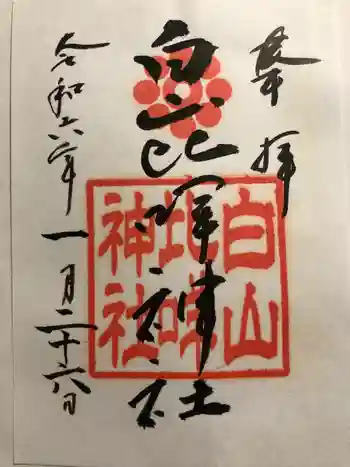 奉拝
白山比咩神社
令和六年一月二十六日
白山
比咩
神社